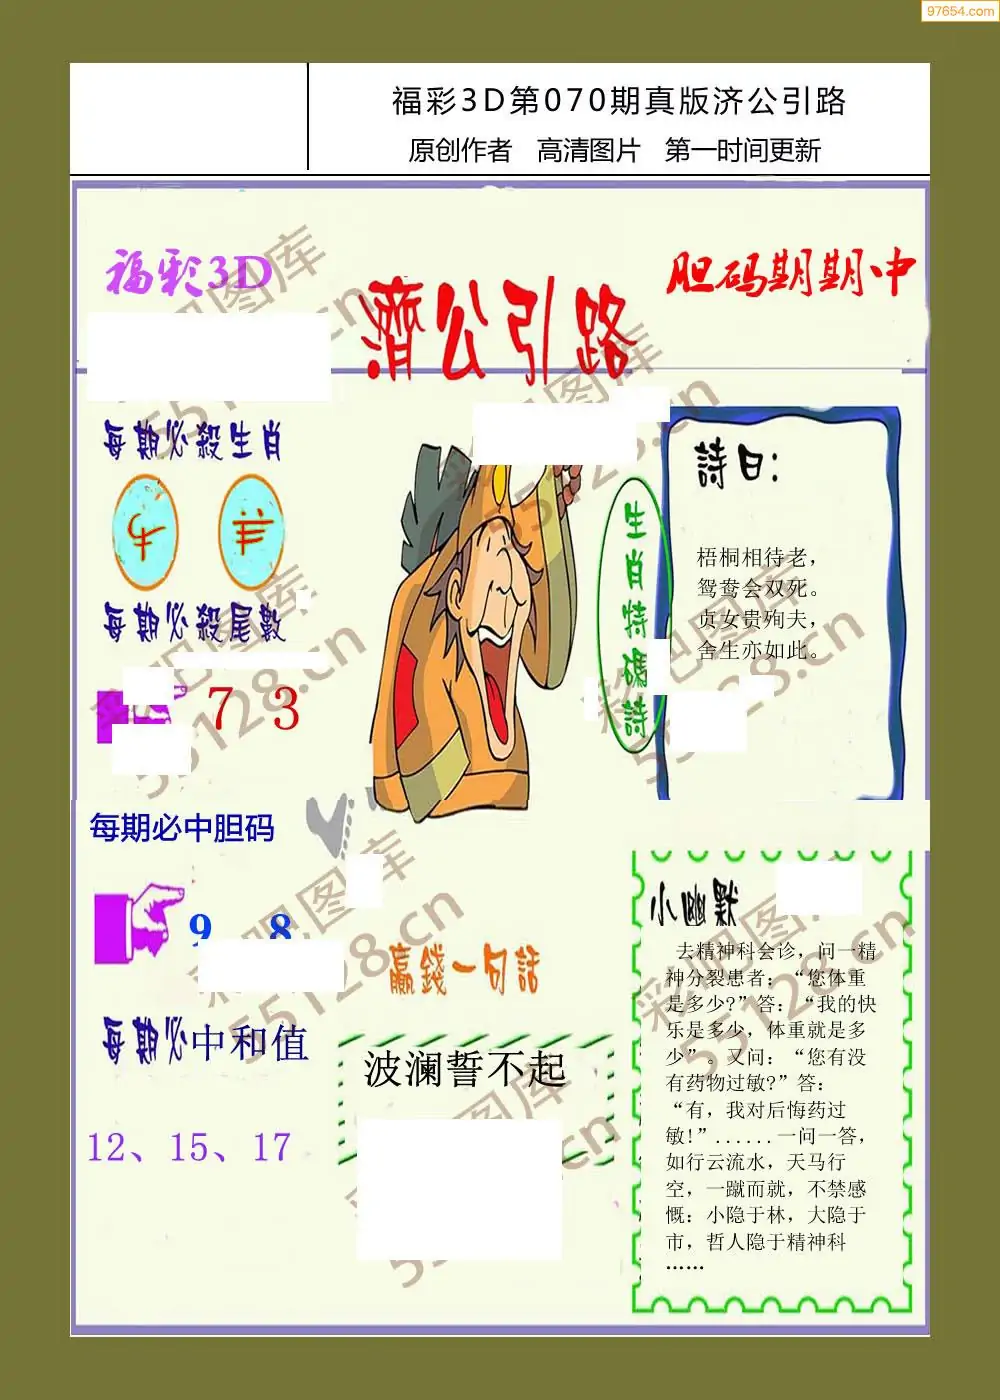 97654.com
福彩3D第070期真版济公引路
原创作者 高清图片 第一时间更新
福彩3D
濟公引路
胆码期期中
每期必殺生肖
牛 羊
每期必殺尾數
7 3
每期必中胆码
9 8
每期必中和值
12、15、17
生肖特碼詩
詩曰：
梧桐相待老，
鸳鸯会双死。
贞女贵殉夫，
舍生亦如此。
贏錢一句話
波澜誓不起
小幽默
去精神科会诊，问一精
神分裂患者：“您体重
是多少?”答：“我的快
乐是多少，体重就是多
少”。又问：“您有没
有药物过敏?”答：
“有，我对后悔药过
敏!”......一问一答，
如行云流水，天马行
空，一蹴而就，不禁感
慨：小隐于林，大隐于
市，哲人隐于精神科
……
彩吧图库
55128.cn